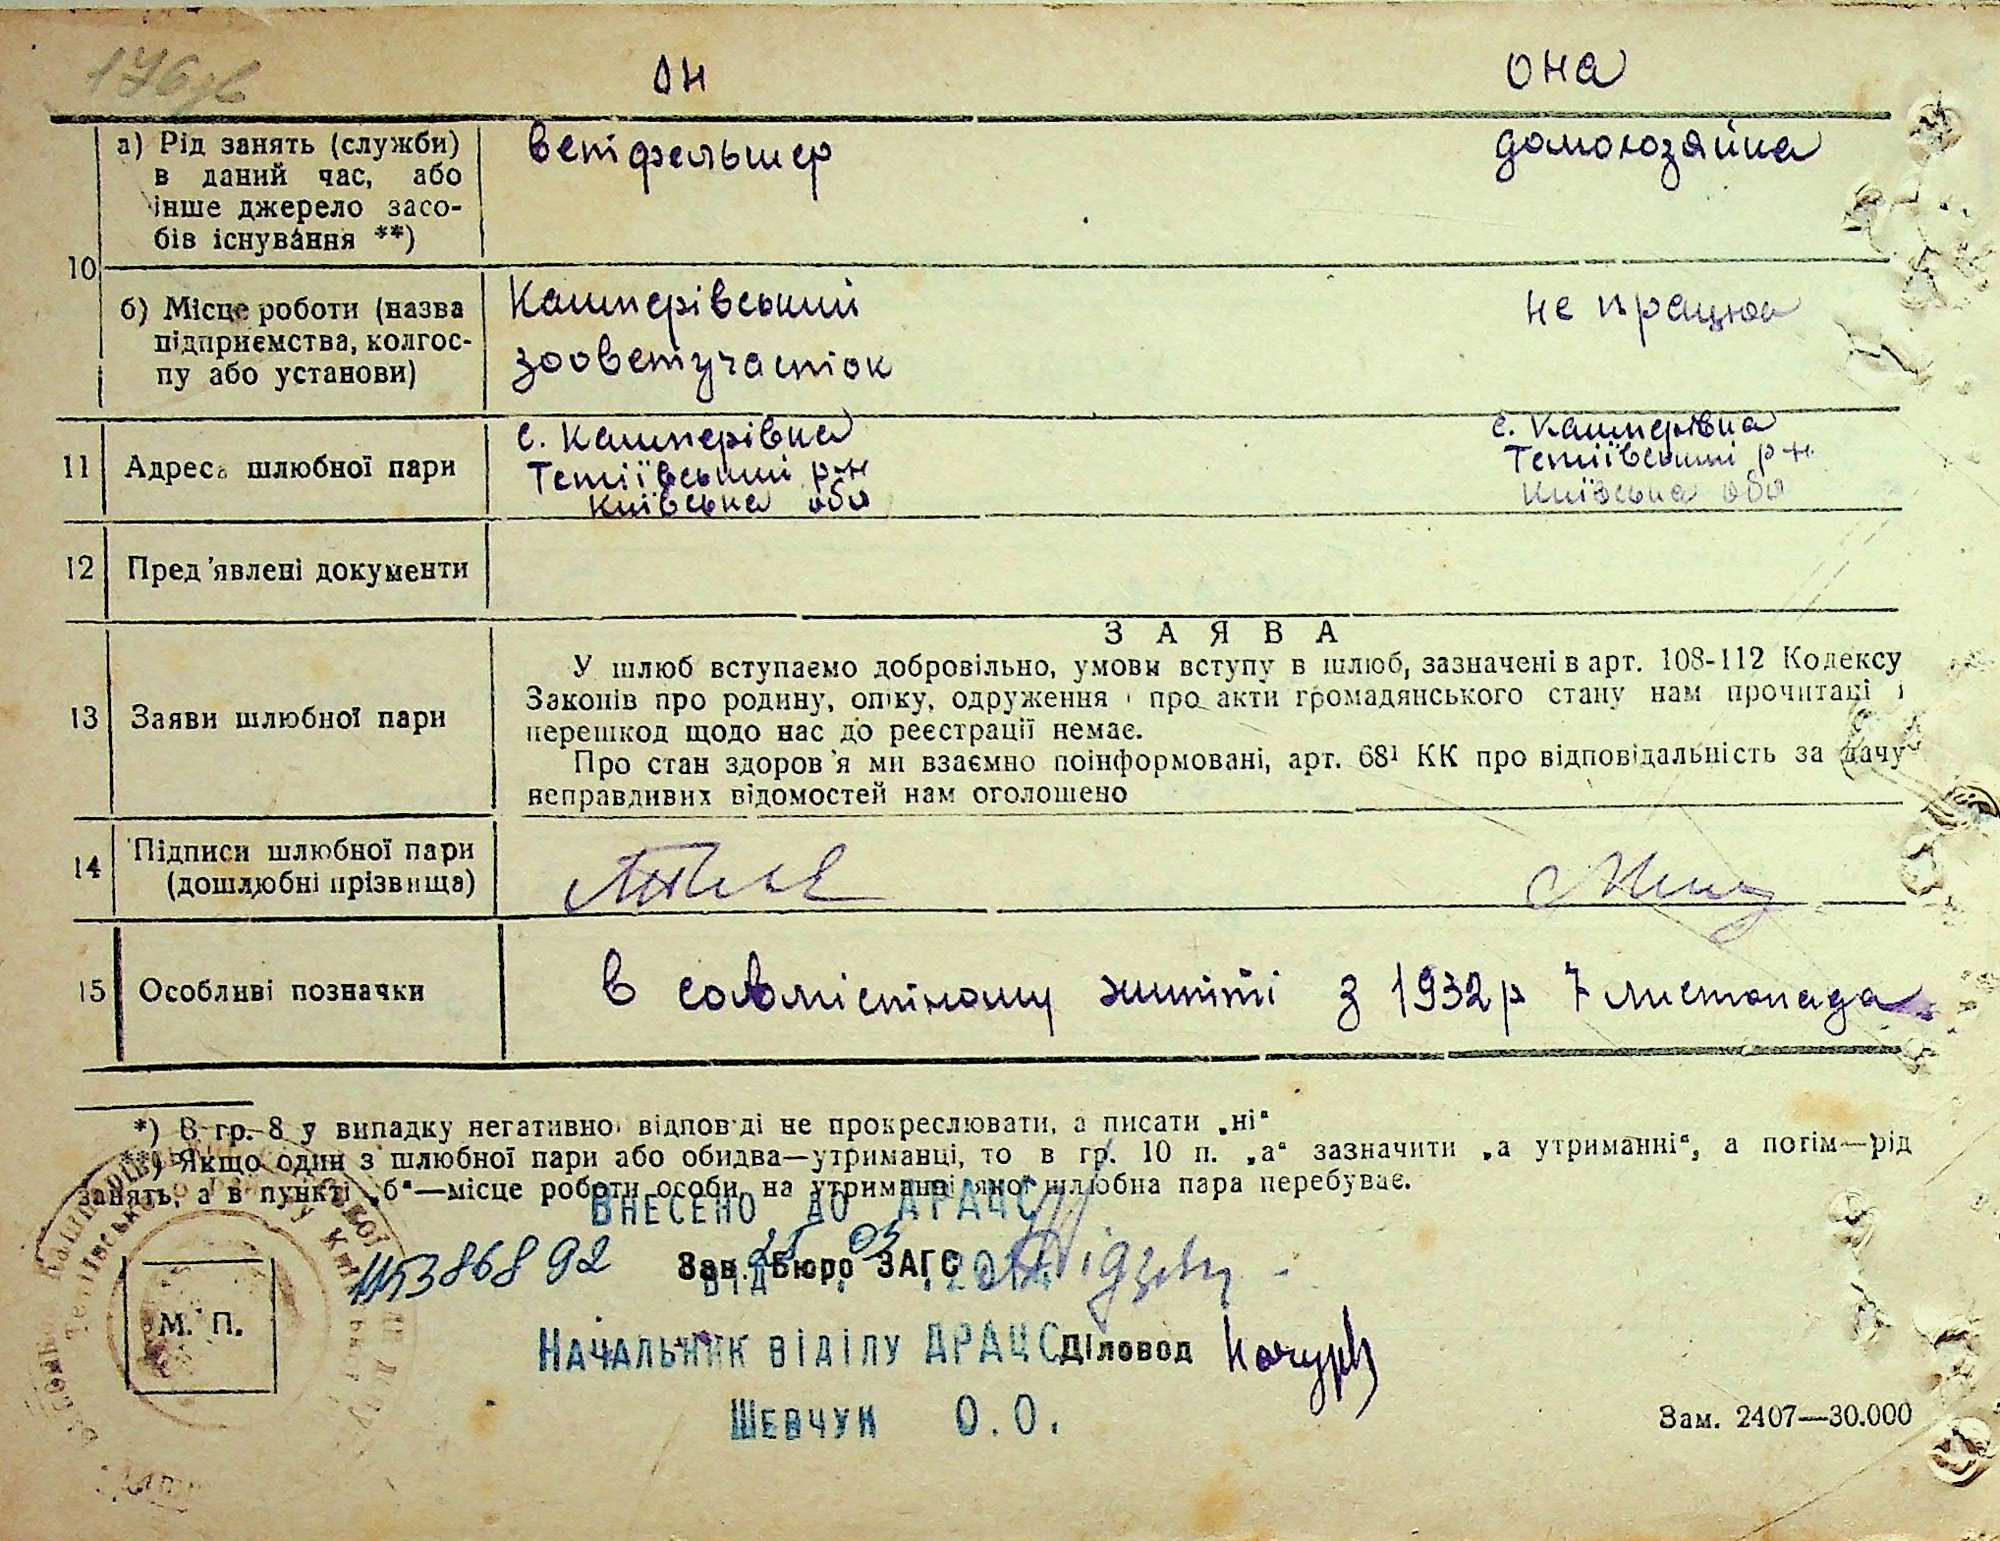 176 зв
он она
10 а) Рід занять (служби) ветфельшер домохозяйка
в даний час, або
інше джерело засо-
бів існування **)
б) Місце роботи (назва Кашперівський не працює
підприємства, колгос- зооветучасток
пу або установи)
11 Адреса шлюбної пари с. Кашперівка с. Кашперівка
Тетіївський р-н Тетіївський р-н
Київська обл Київська обл
12 Пред'явлені документи
ЗАЯВА
13 Заяви шлюбної пари
У шлюб вступаємо добровільно, умови вступу в шлюб, зазначені в арт. 108-112 Кодексу
Законів про родину, опіку, одруження і про акти громадянського стану нам прочитані і
перешкод щодо нас до реєстрації немає.
Про стан здоров'я ми взаємно поінформовані, арт. 68¹ КК про відповідальність за дачу
неправдивих відомостей нам оголошено
14 Підписи шлюбної пари
(дошлюбні прізвища)
15 Особливі позначки в совмістному житті з 1932 р 7 листопада
*) В гр. 8 у випадку негативної відповіді не прокреслювати, а писати „ні“
**) Якщо один з шлюбної пари або обидва—утриманці, то в гр. 10 п. „а“ зазначити „а утриманні“, а потім—рід
занять, а в пункті „б“—місце роботи особи, на утриманні якої шлюбна пара перебуває.
Внесено до ДРАЦС
53868 92 Зав. Бюро ЗАГС
від 25.03.2014
М. П.
Начальник відділу ДРАЦС Діловод
Шевчук О.О.
Зам. 2407—30.000